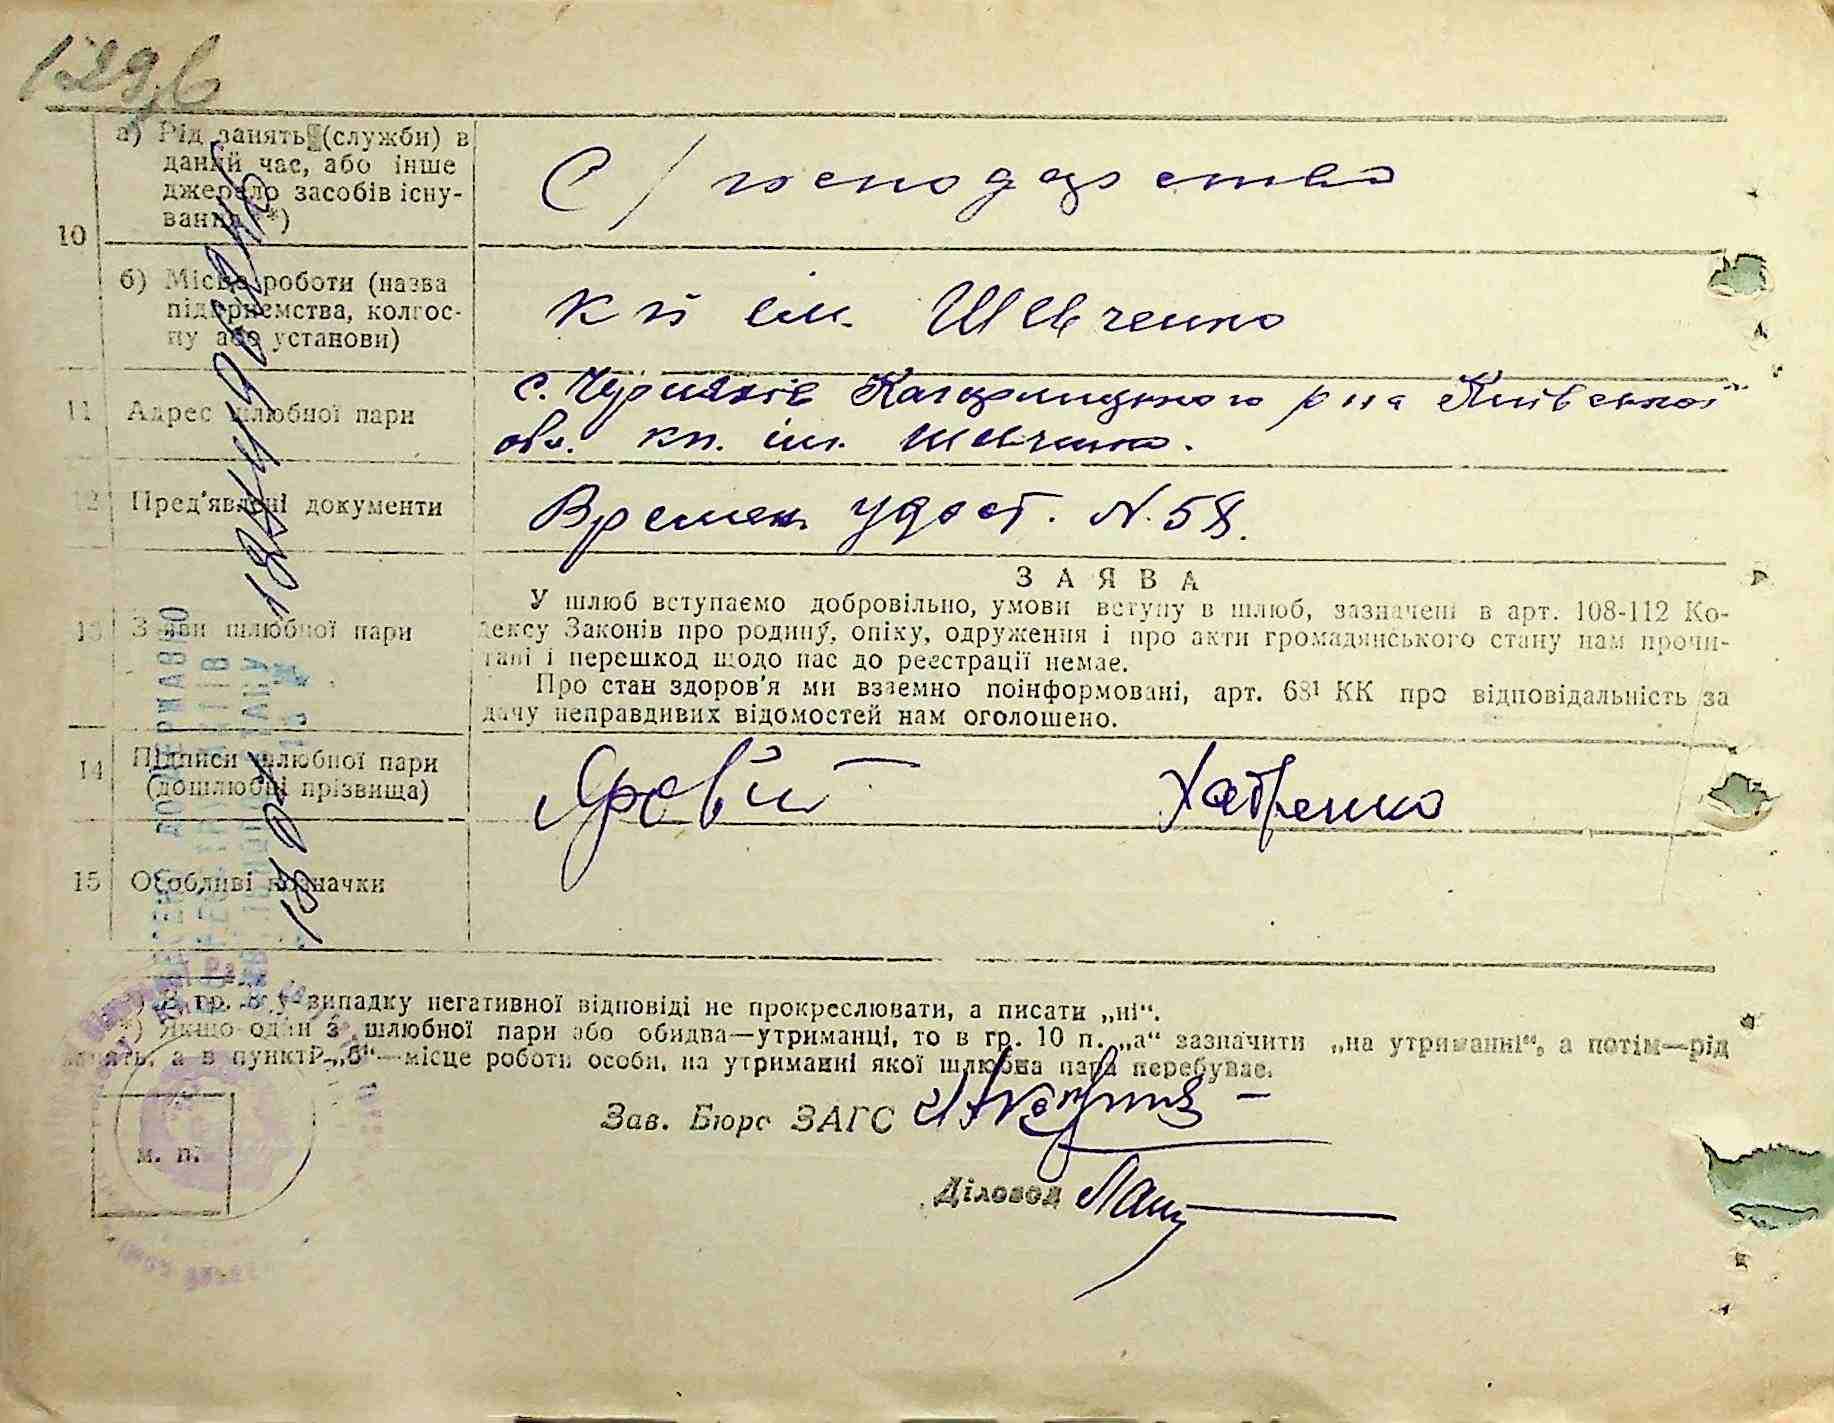 129,6
10 а) Рід занять (служби) в
даний час, або інше
джерело засобів існу-
вання **)
С/господарство
б) Місце роботи (назва
підприємства, колгос-
пу або установи)
кп ім. Шевченко
11 Адрес шлюбної пари
с. Черняхів Кагарлицького р на Київської
обл. кп. ім. Шевченко.
12 Пред'явлені документи
Времен. удост. N. 58.
13 Заяви шлюбної пари
ЗАЯВА
У шлюб вступаємо добровільно, умови вступу в шлюб, зазначені в арт. 108-112 Ко-
дексу Законів про родину, опіку, одруження і про акти громадянського стану нам прочи-
тані і перешкод щодо нас до реєстрації немає.
Про стан здоров'я ми взаємно поінформовані, арт. 68¹ КК про відповідальність за
дачу неправдивих відомостей нам оголошено.
14 Підписи шлюбної пари
(дошлюбні прізвища)
Яровій Хабренко
15 Особливі позначки
*) В гр. у випадку негативної відповіді не прокреслювати, а писати „ні“.
**) Якщо один з шлюбної пари або обидва—утриманці, то в гр. 10 п. „а“ зазначити „на утриманні“, а потім—рід
занять, а в пункті „б“—місце роботи особи, на утриманні якої шлюбна пара перебуває.
Зав. Бюро ЗАГС
Діловод
м. п.